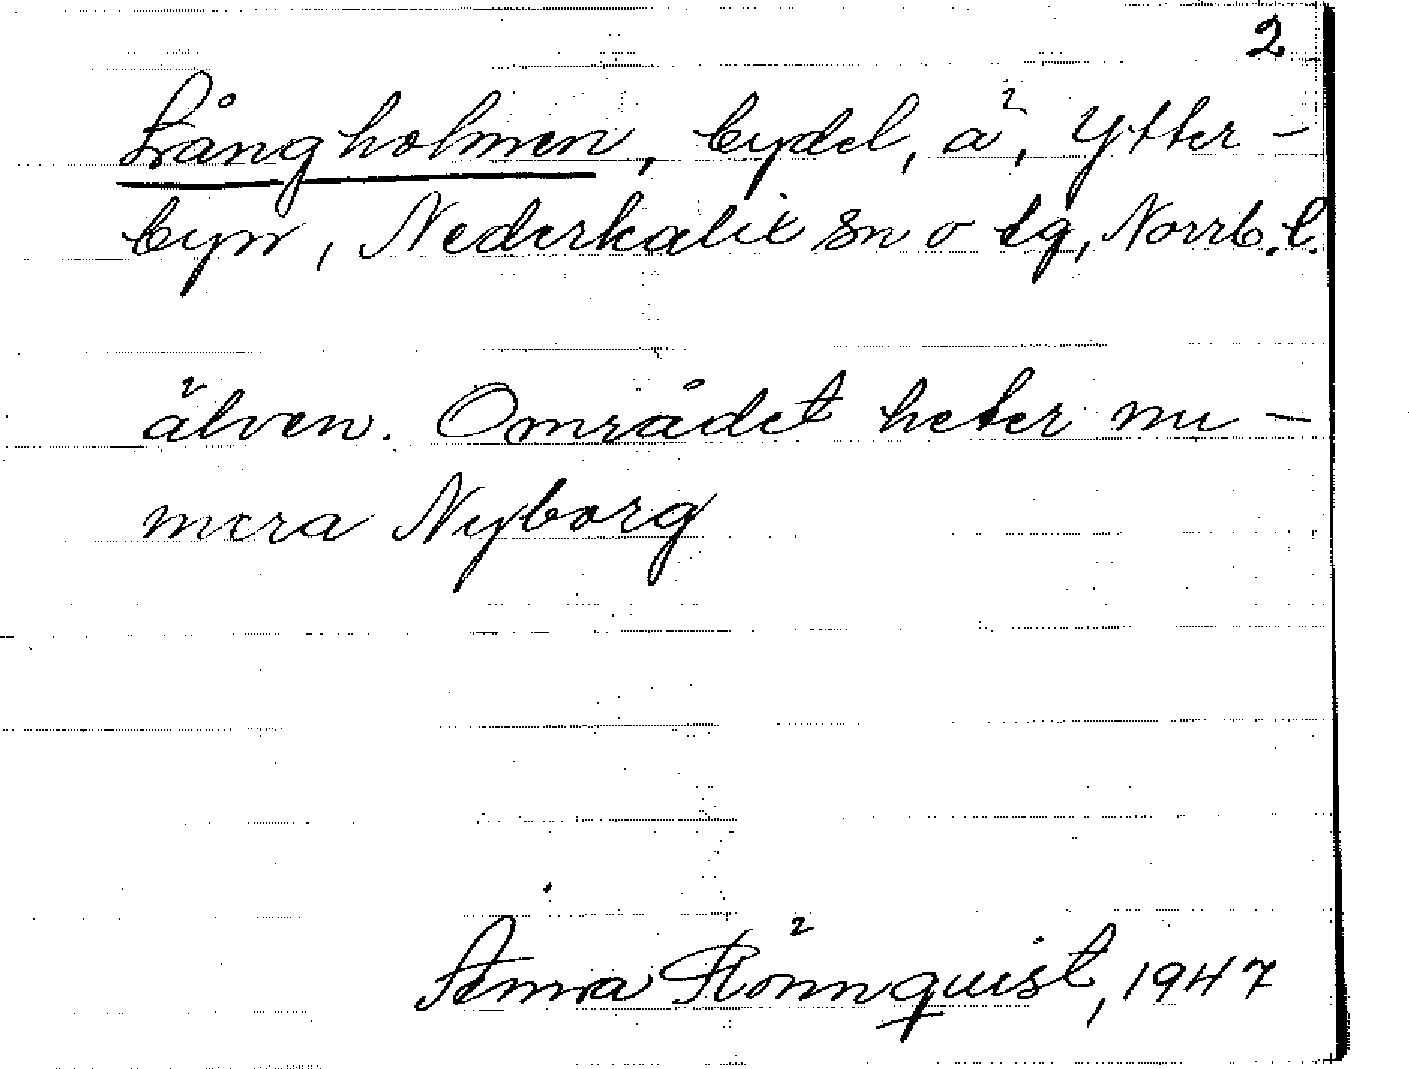 2
Långholmen, bydel, ä, Ytter-
byn, Nederkalix sn o tg, Norrb. l.
älven. Området heter nu-
mera Nyborg
Anna Rönnquist, 1947